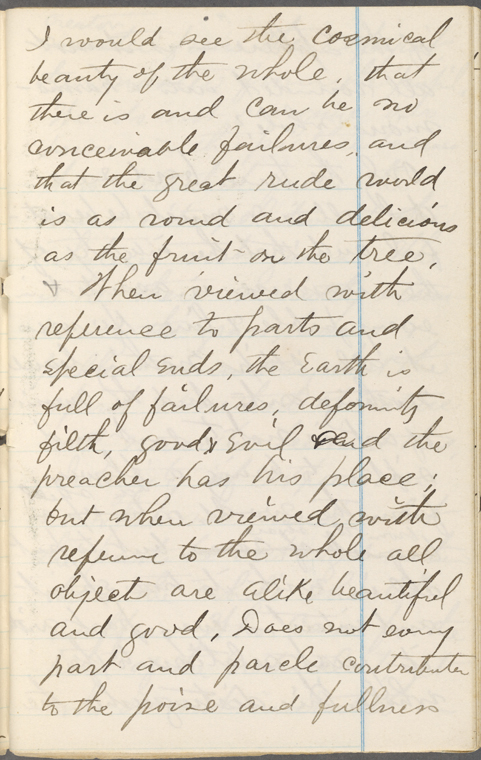 I would see the cosmical
beauty of the whole, that
there is and can be no
conceivable failures, and
that the great rude world
is as round and delicious
as the fruit on the tree.
When viewed with
reference to parts and
special ends, the Earth is
full of failures, deformity
filth, good & Evil and the
preacher has his place;
but when viewed with
reference to the whole all
object are alike beautiful
and good. Does not every
part and parcle contributer
to the poise and fullness